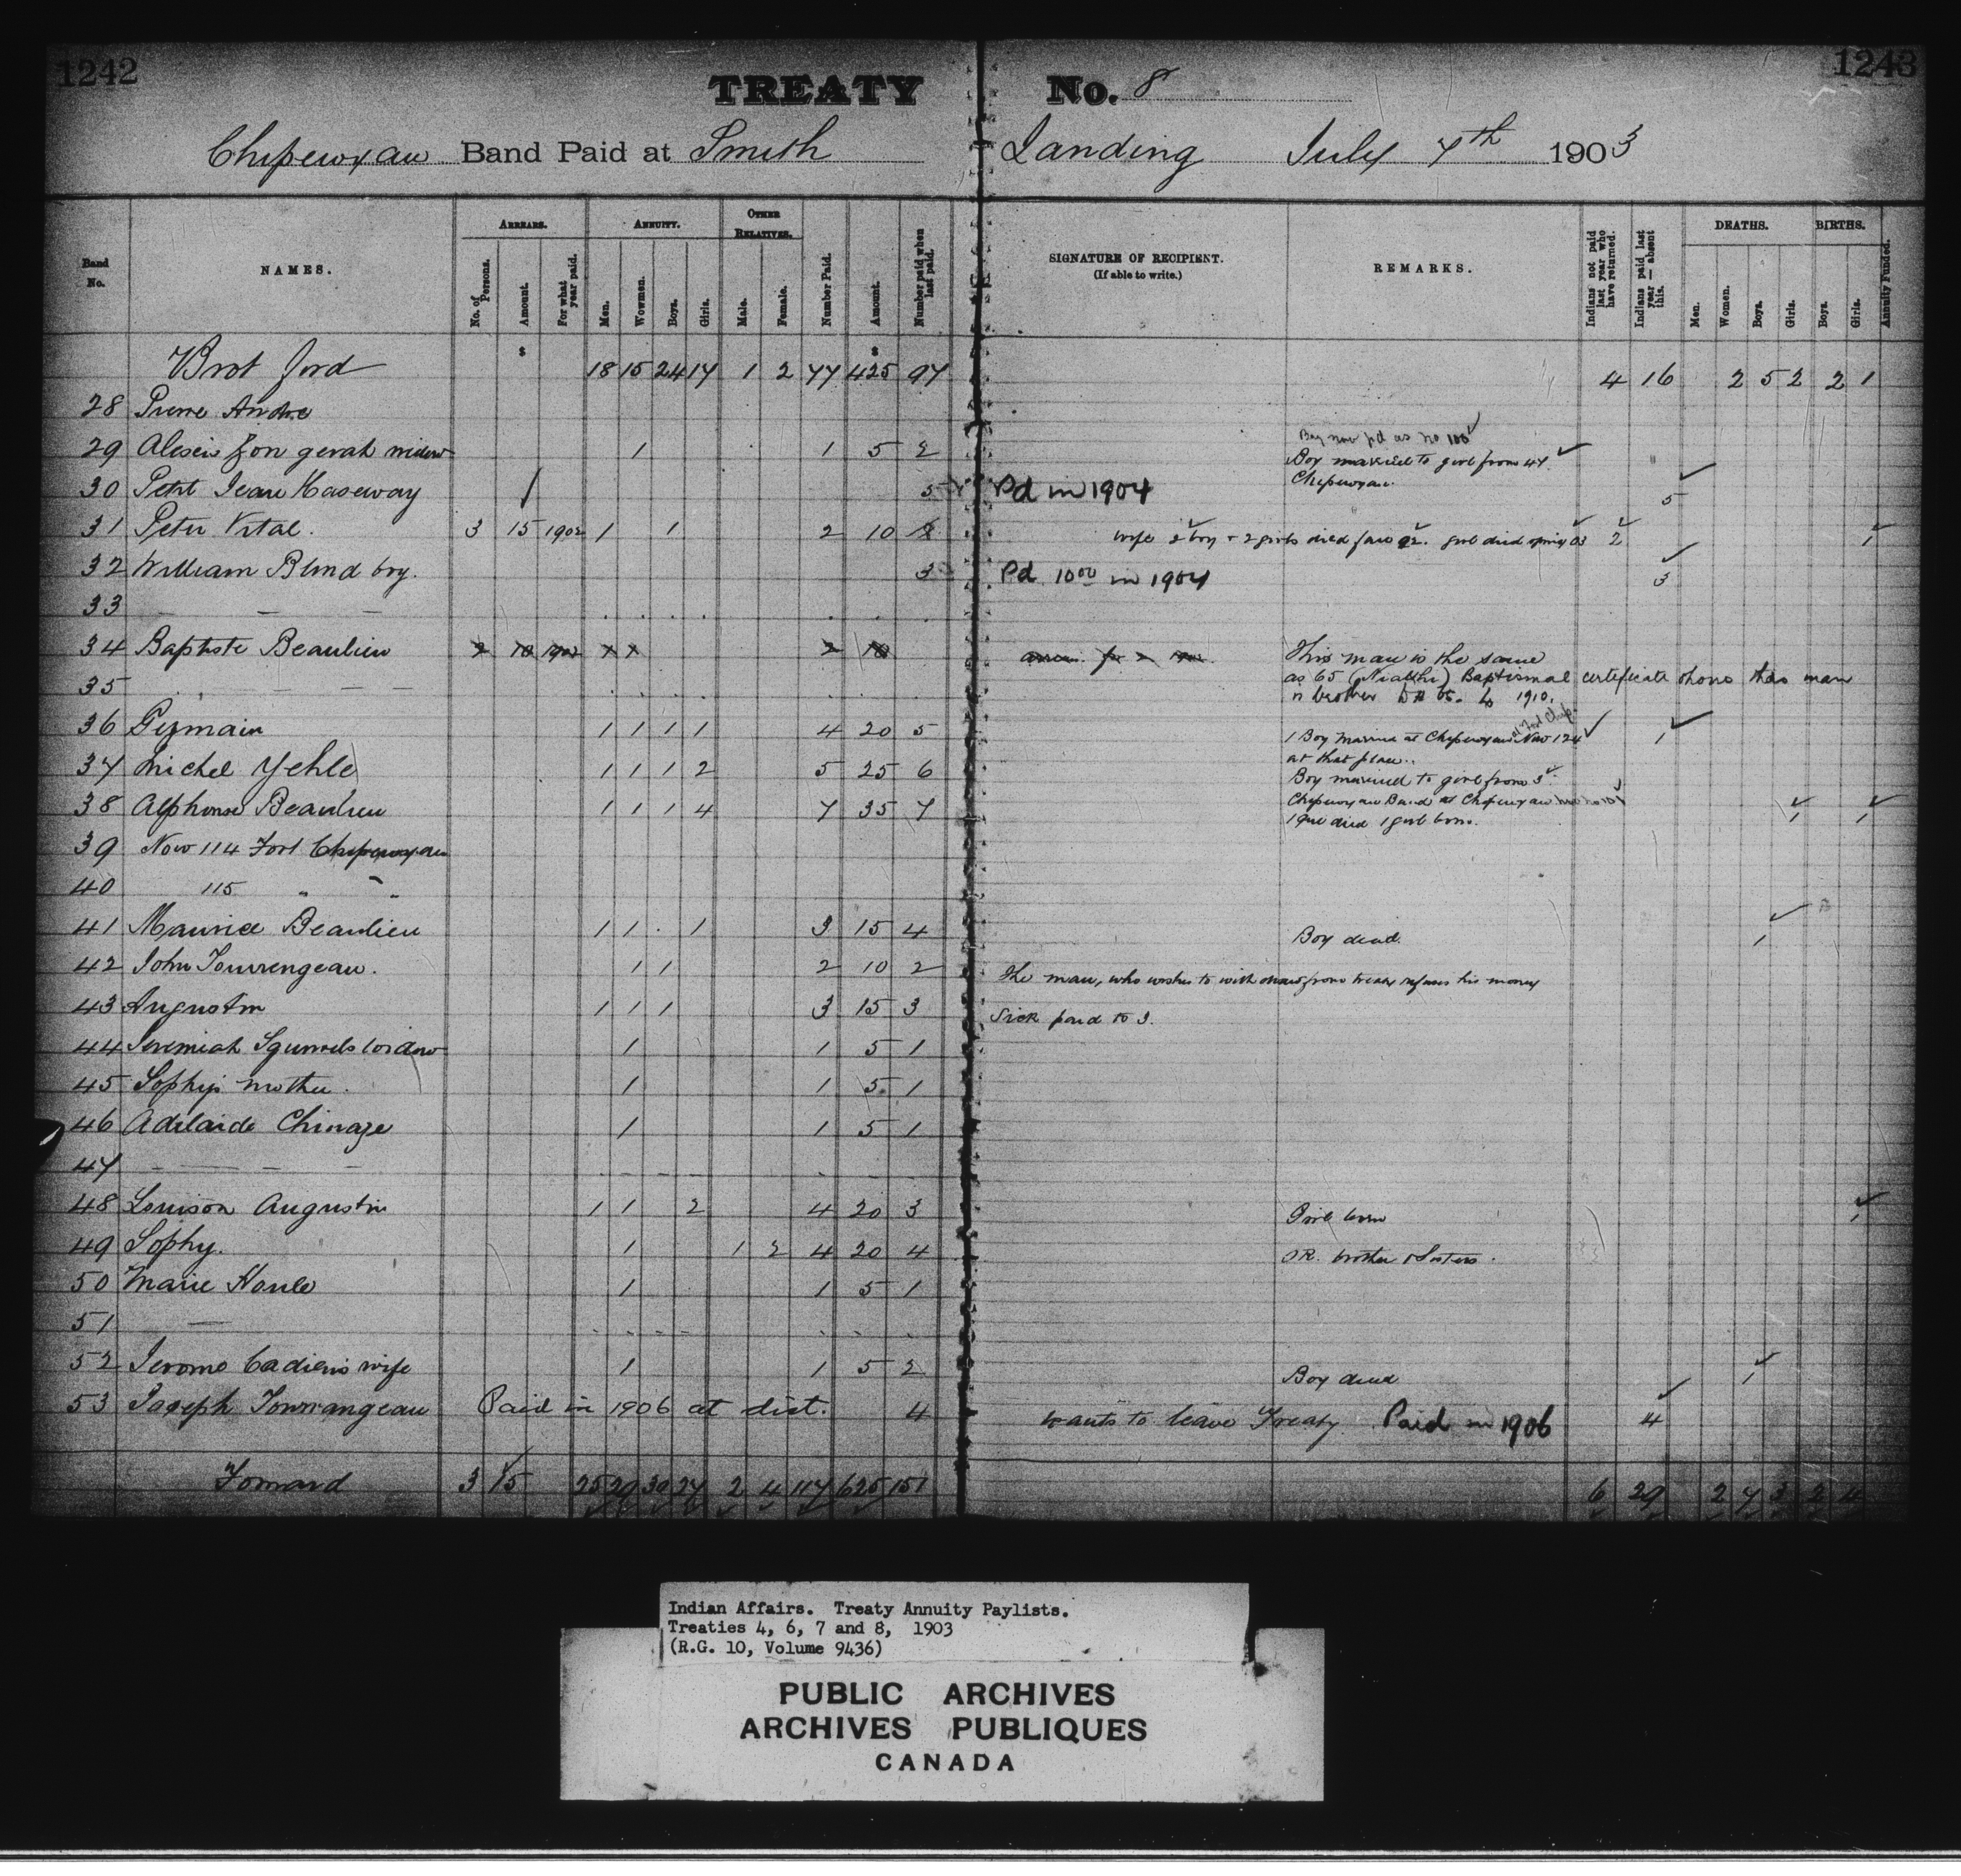 1242 1243
TREATY No. 8
Chipewyan Band Paid at Smith Landing July 7th 1903
Band No. NAMES. ARREARS. No. of Persons. Amount. For what year paid. ANNUITY. Men. Wowmen. Boys. Girls. OTHER RELATIVES. Male. Female. Number Paid. Amount. Number paid when last paid. SIGNATURE OF RECIPIENT. (If able to write.) REMARKS. Indians not paid last year who have returned. Indians paid last year — absent this. DEATHS. Men. Women. Boys. Girls. BIRTHS. Boys. Girls. Annuity Funded.
$ $
Brot ford 18 15 24 17 1 2 77 425 97 4 16 2 5 2 2 1
28 Pierre Andre
Boy now pd as no 100
29 Alexis widow 1 1 5 2 Boy married to girl from 47
30 Petit Jean Kaseway 5 Pd in 1904 Chipewyan. 5
31 Peter Vital. 3 15 1902 1 1 2 10 8 wife boy + 2 girls died girl died spring 03 2 1
32 William Blind boy. 3 Pd 10 00 in 1904 3
33 — — —
34 Baptiste Beaulieu 2 10 1902 1 1 2 10 This man is the same
35 — — — as 65 Baptismal certificate shows this man
1910.
36 Germain 1 1 1 1 4 20 5 1 Boy married at Chipewyan Now 124 at Fort Chip. 1
at that place.
37 Michel Yehle 1 1 1 2 5 25 6 Boy married to girl from 3
38 Alphonse Beaulieu 1 1 1 4 7 35 7 Chipewyan Band at Chipewyan 1 1
1 girl died 1 girl born.
39 Now 114 Fort Chipewyan
40 115 " "
41 Maurice Beaulieu 1 1 . 1 3 15 4 Boy dead. 1
42 John Tourrengeau. 1 1 2 10 2 The man, who wishes to withdraw from treaty refuses his money
43 Augustin 1 1 1 3 15 3 Sick paid to J.
44 Jeremiah Squirrels widow 1 1 5 1
45 Sophy's mother. 1 1 5 1
46 Adelaide Chinaze 1 1 5 1
47 — — — —
48 Louison Augustin 1 1 2 4 20 3 Girl born 1
49 Sophy. 1 1 2 4 20 4 OR. brother & Sisters.
50 Marie Houle 1 1 5 1
51 —
52 Jerome Cadien's wife 1 1 5 2 Boy dead 1
53 Joseph Tourrangeau Paid in 1906 at dist. 4 wants to leave Treaty Paid in 1906 4
Forward 3 15 25 29 30 27 2 4 117 625 151 6 29 2 7 3 2 4
Indian Affairs. Treaty Annuity Paylists.
Treaties 4, 6, 7 and 8, 1903
(R.G. 10, Volume 9436)
PUBLIC ARCHIVES
ARCHIVES PUBLIQUES
CANADA